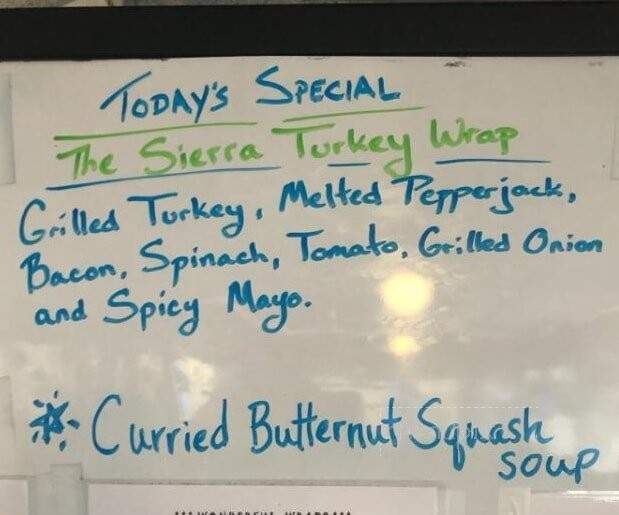 TODAY'S SPECIAL
The Sierra Turkey Wrap
Grilled Turkey, Melted Pepperjack,
Bacon, Spinach, Tomato, Grilled Onion
and Spicy Mayo.
Curried Butternut Squash
soup